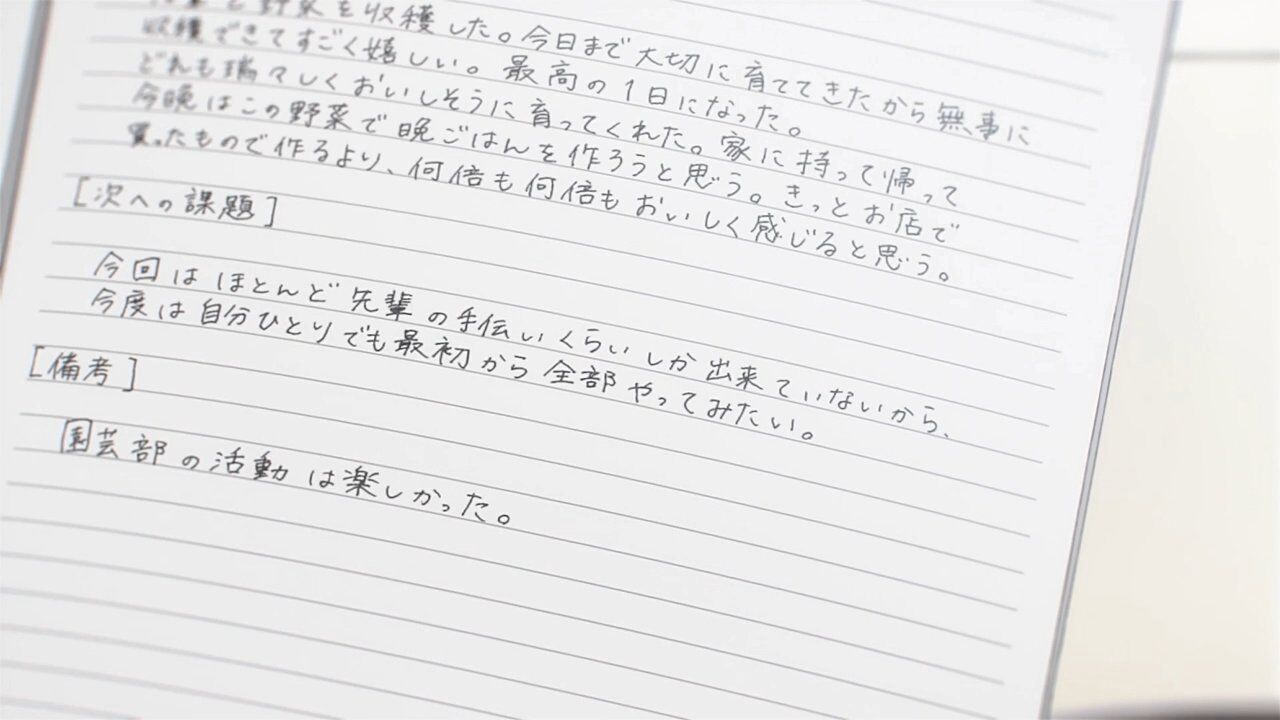 と野菜を収穫した。今日まで大切に育ててきたから無事に
収穫できてすごく嬉しい。最高の1日になった。
どれも瑞々しくおいしそうに育ってくれた。家に持って帰って
今晩はこの野菜で晩ごはんを作ろうと思う。きっとお店で
買ったもので作るより、何倍も何倍もおいしく感じると思う。
[次への課題]
今回はほとんど先輩の手伝いくらいしか出来ていないから、
今度は自分ひとりでも最初から全部やってみたい。
[備考]
園芸部の活動は楽しかった。